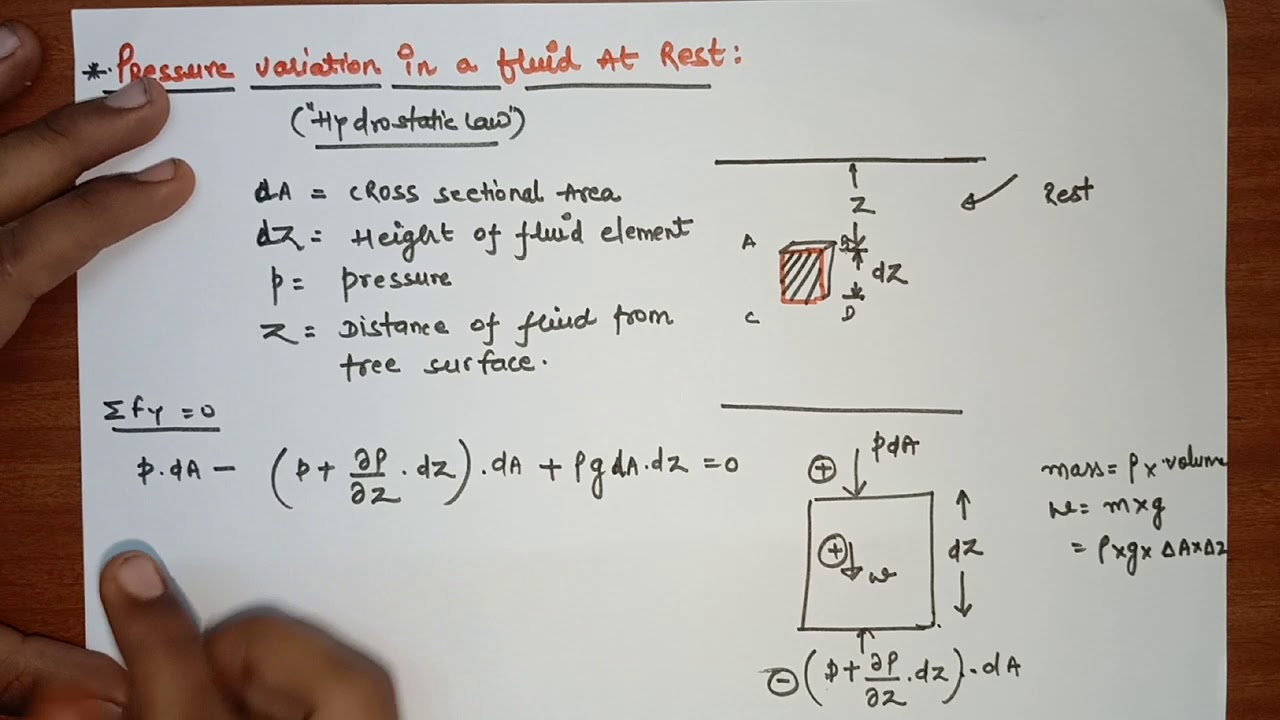 *. Pressure variation in a fluid At Rest:
("Hydrostatic Law")
dA = CROSS sectional Area
dz = Height of fluid element
p = pressure
z = Distance of fluid from
free surface.
Z
Rest
A B
dz
C D
Σfy = 0
p.dA - (p + ∂p/∂z . dz) . dA + ρg dA.dz = 0
⊕ pdA
⊕ w
dz
⊖ (p + ∂p/∂z . dz) . dA
mass = ρ x volume
w = m x g
= ρ x g x ΔA x Δz